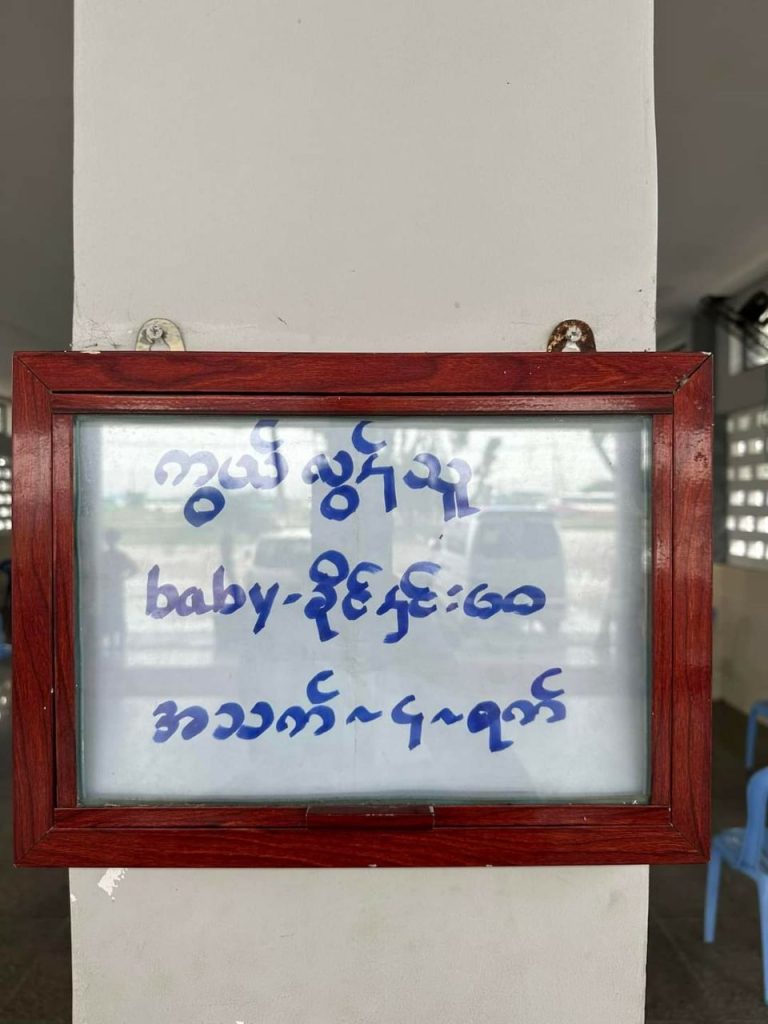 ကွယ်လွန်သူ
baby-ခိုင်နှင်းဝေ
အသက် ~ ၄ ~ ရက်